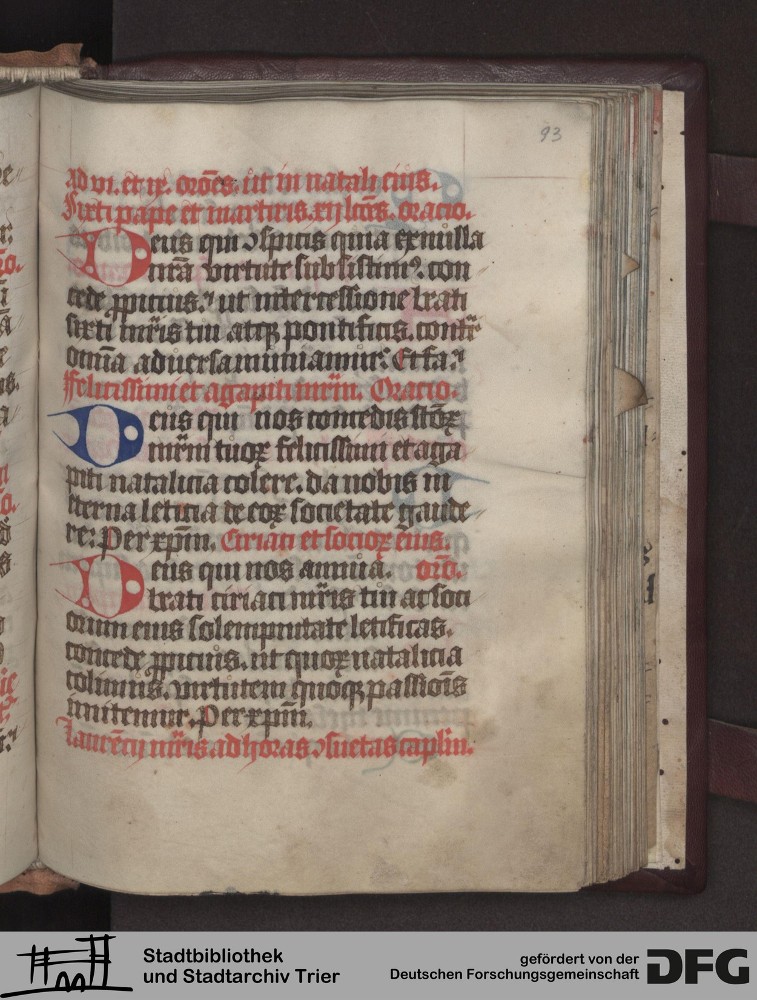 93
Ad vi. et ix. orōes. ut in natali eius.
Sixti pape et martiris. xij lcōs. oracio.
Deus qui ↄspicis quia ex nulla
nr̄a virtute subsistim⁹. con
cede ꝓpicius. ut intercessione beati
sixti mr̄is tui atqꝫ pontificis. contͬ
om̄ia aduersa muniamur. Et fa.
Felicissimi et agapiti mr̄m. Oracio.
Deus qui nos concedis sc̄oꝝ
mr̄m tuoꝝ felicissimi et aga
piti natalicia colere. da nobis in
eterna leticia de eoꝝ societate gaude
re: Per xp̄m. Ciriaci et socioꝝ eius.
Deus qui nos annua. orō.
beati ciriaci mr̄is tui ac soci
orum eius solempnitate letificas.
concede ꝓpicius. ut quoꝝ natalicia
colimus. virtutem quoqꝫ passiōis
imitemur. Per xp̄m.
Laurēcij mr̄is ad horas ↄsuetas caplm̄.
Stadtbibliothek
und Stadtarchiv Trier
gefördert von der
Deutschen Forschungsgemeinschaft
DFG